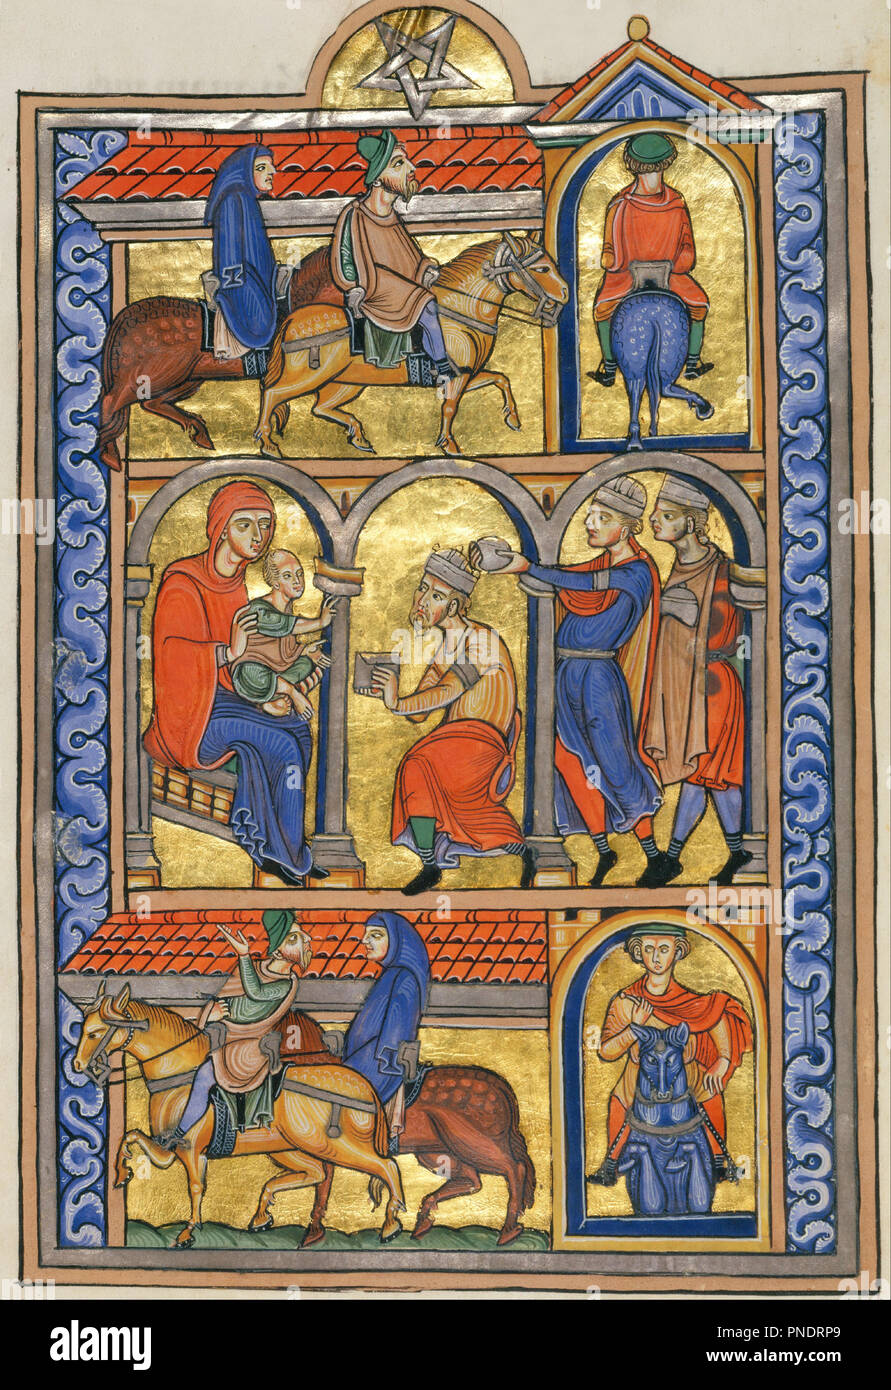 alamy
a
a
alamy
Image ID: PNDRP9
www.alamy.com